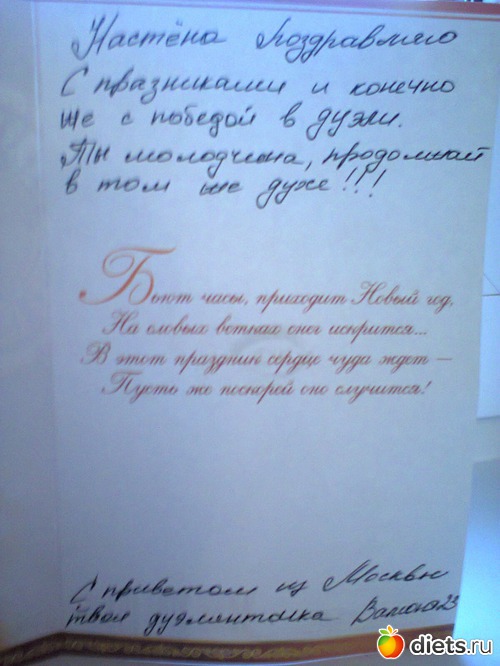 Настёна Поздравляю
С празниками и конечно
же с победой в дуэли.
Ты молодчина, продолжай
в том же духе!!!
Бьют часы, приходит Новый год,
На еловых ветках снег искрится...
В этот праздник сердце чуда ждет —
Пусть же поскорей оно случится!
С приветом из Москвы
твоя дуэлянточка
diets.ru